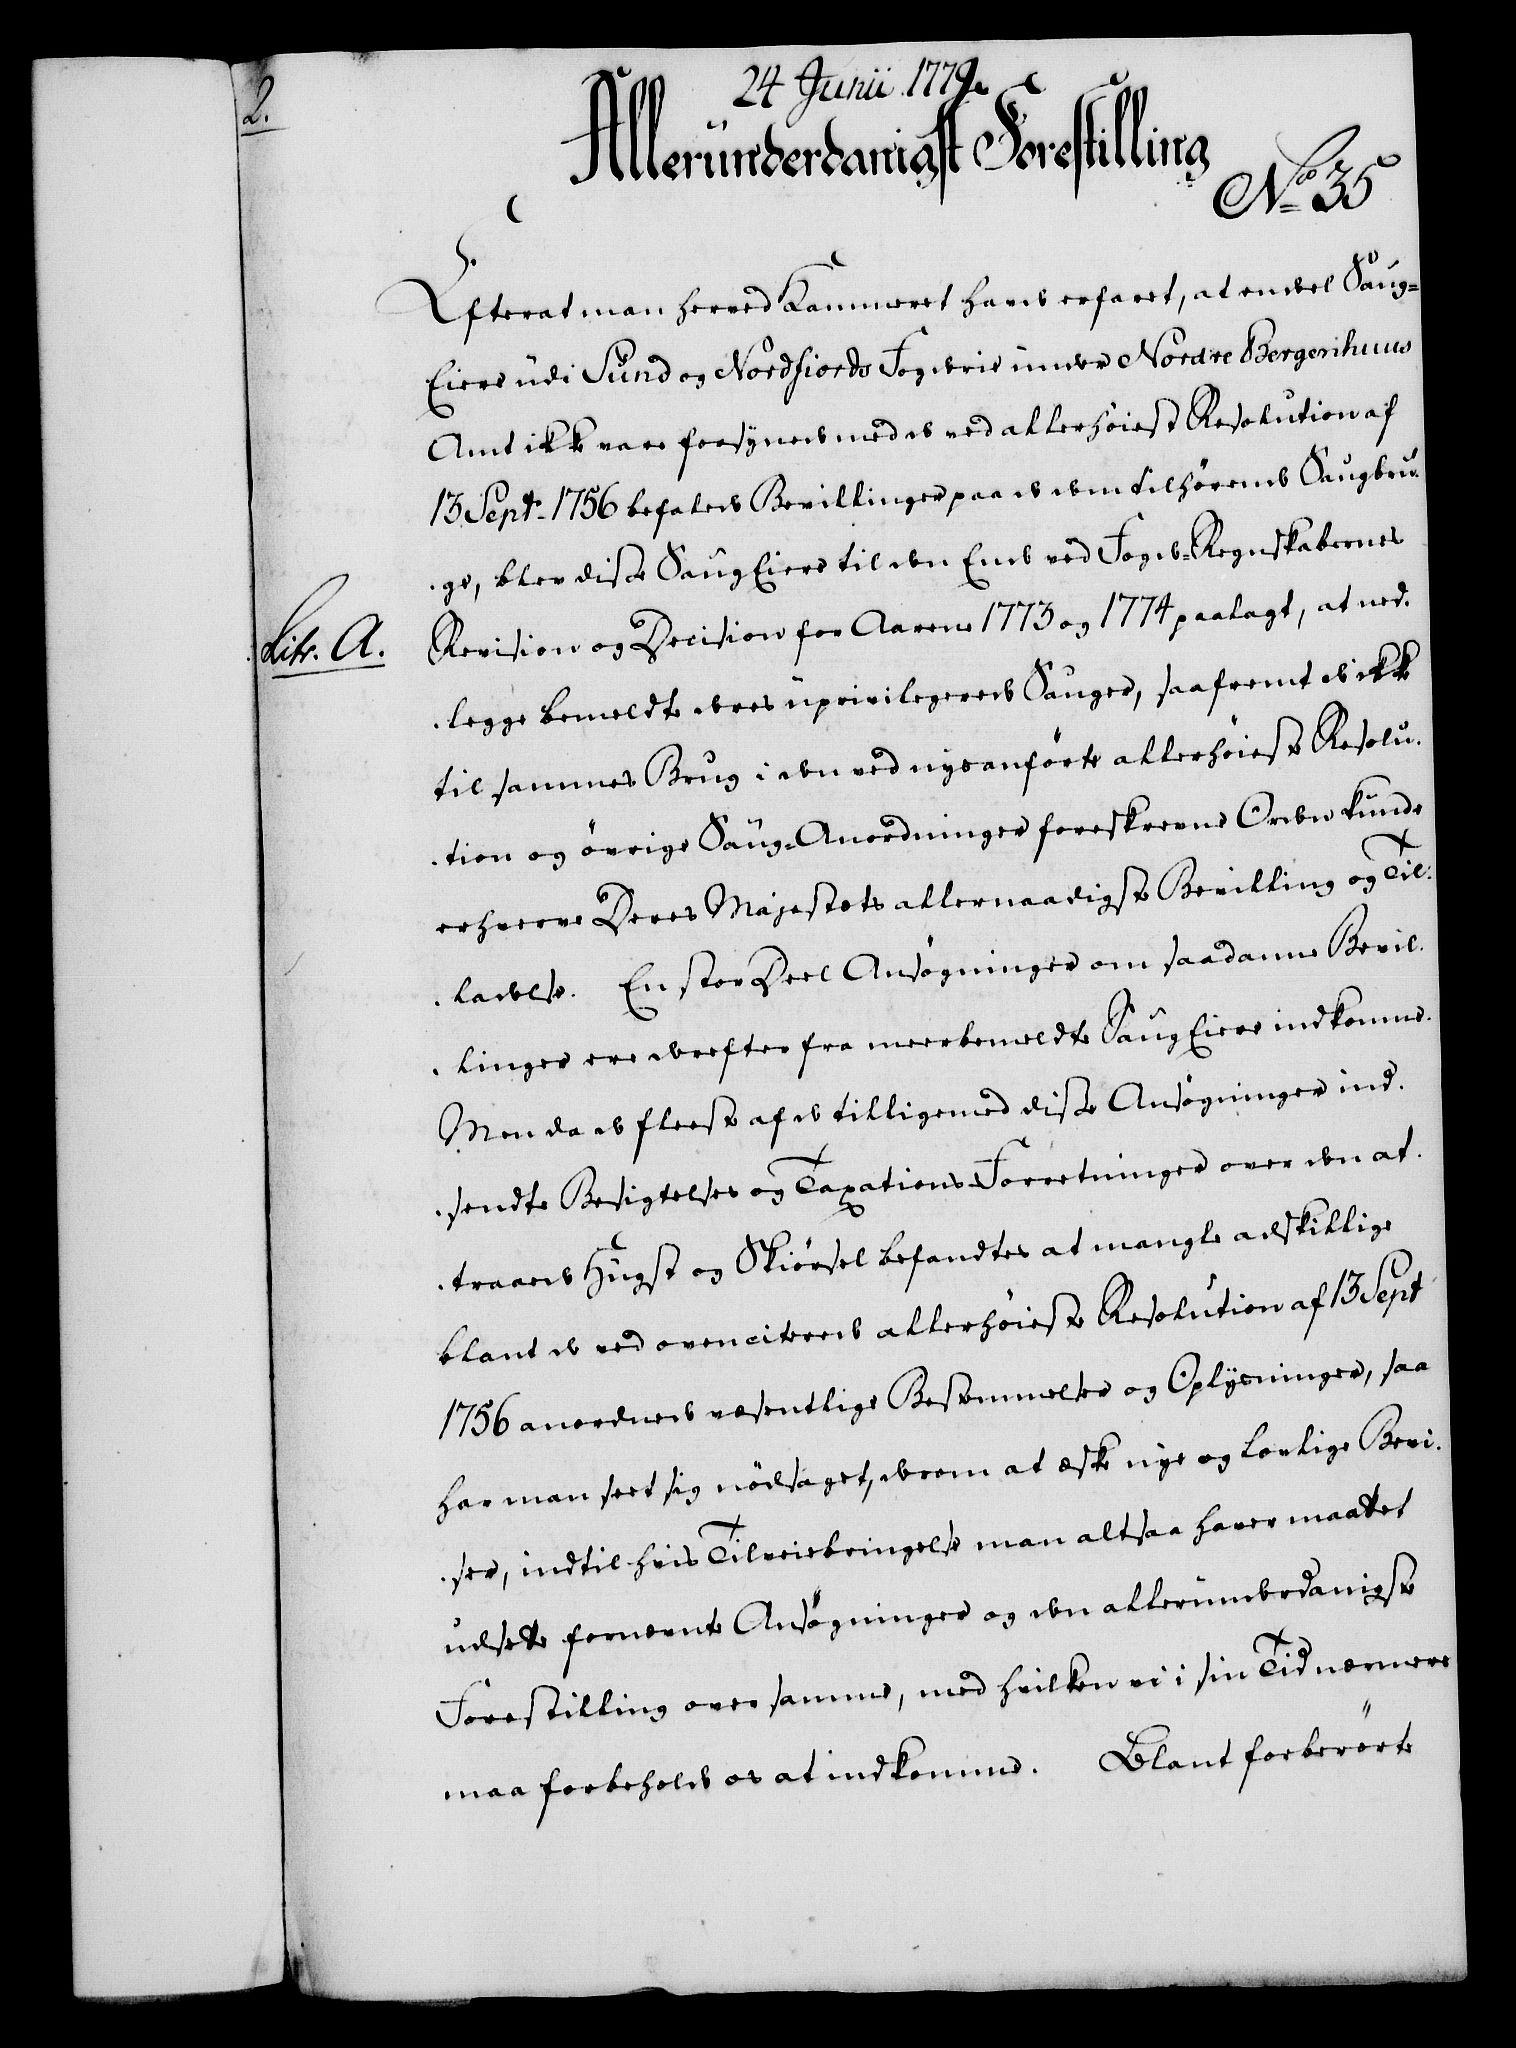 2.
24 Junii 1779.
Alleründerdanigst Forestilling
No 35
Efterat man herved Kammeret havde erfaret, at endeel Saug-
Eiere udi Sund og Nordfiords Fogderie under Nordre Bergenhuus
Amt ikke vare forsynede med de ved allerhöieste Resolution af
13 Septr. 1756 befalede Bevillinger paa de dem tilhörende Saugbru-
-ge, blev disse Saug Eiere til den Ende ved Fogde-Regnskabernes
Litr. A.
Revision og Decision for Aarene 1773 og 1774 paalagt, at ned-
-legge bemeldte deres uprivilegerede Sauger, saafremt de ikke
til sammes Brug i den ved nysanförte allerhöieste Resolu-
-tion og övrige Saug-Anordninger foreskrevne Orden kunde
erhverve Deres Majestæts allernaadigste Bevilling og Til-
-ladelse. En stor Deel Ansögninger om saadanne Bevil-
-linger ere derefter fra meerbemeldte Saug Eiere indkomne.
Men da de fleeste af de tilligemed disse Ansögninger ind-
-sendte Besigtelses og Taxations-Forretninger over den at-
-traaede Hugst og Skiörsel befandtes at mangle adskillige
blant de ved ovenciterede allerhöieste Resolution af 13 Sept
1756 anordnede væsentlige Bestemmelser og Oplysninger, saa
har man seet sig nödsaget, derom at æske nye og lovlige Bevi-
-ser, indtil hvis Tilveiebringelse man altsaa haver maattet
udsette fornevnte Ansögninger og den allerunderdanigste
Forestilling over samme, med hvilken vi i sin Tid nærmere
maa forbeholde os at indkomme. Blant forberörte